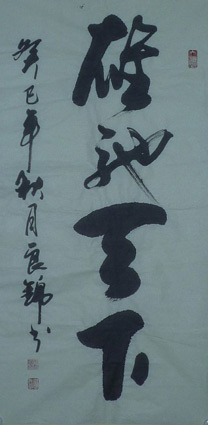 雄驰天下
癸巳年秋月良锦书